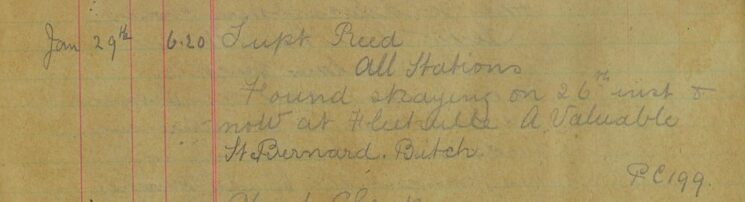 Jan 29th 6.20 Supt Reed
All Stations
Found straying on 26th inst &
now at Fleetville A Valuable
St Bernard. Bitch
P.C 199.